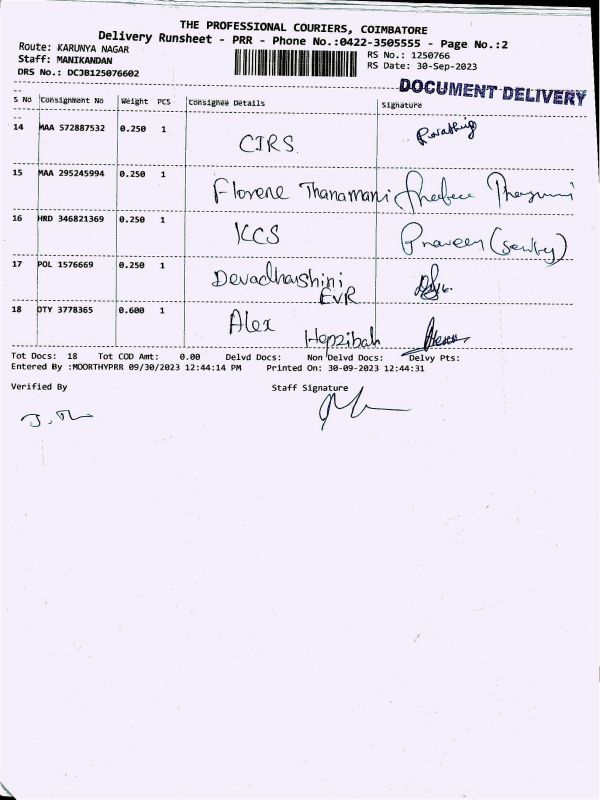 THE PROFESSIONAL COURIERS, COIMBATORE
Delivery Runsheet - PRR - Phone No.:0422-3505555 - Page No.:2
Route: KARUNYA NAGAR
Staff: MANIKANDAN
DRS No.: DCJB125076602
RS No.: 1250766
RS Date: 30-Sep-2023
DOCUMENT DELIVERY
S No Consignment No Weight PCS Consignee Details Signature
14 MAA 572887532 0.250 1 CIRS
15 MAA 295245994 0.250 1 Florene Thanamani
16 HRD 346821369 0.250 1 KCS Praveen
17 POL 1576669 0.250 1 Devadharshini
EVR
18 OTY 3778365 0.600 1 Alex
Hepzibah
Tot Docs: 18 Tot COD Amt: 0.00 Delvd Docs: Non Delvd Docs: Delvy Pts:
Entered By :MOORTHYPRR 09/30/2023 12:44:14 PM Printed On: 30-09-2023 12:44:31
Verified By Staff Signature